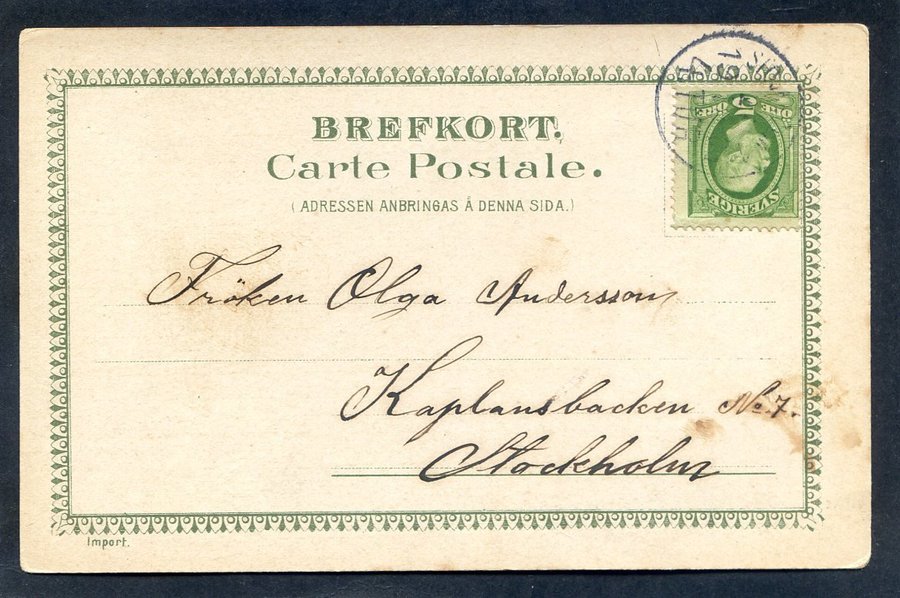 BREFKORT.
Carte Postale.
(ADRESSEN ANBRINGAS Å DENNA SIDA.)
5
ÖRE ÖRE
SVERIGE
Fröken Olga Andersson
Kaplansbacken No 7.
Stockholm
Import.